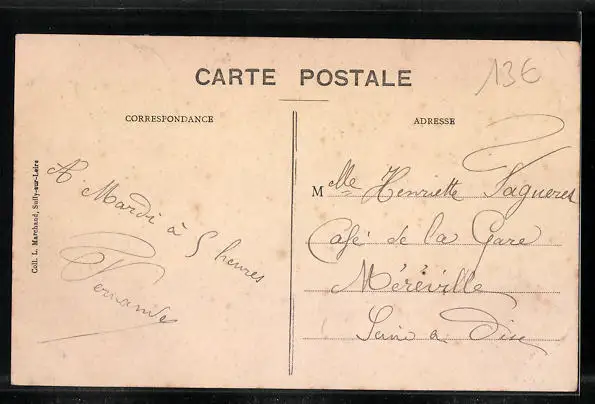 CARTE POSTALE
136
CORRESPONDANCE
ADRESSE
Coll. L. Marchand, Sully-sur-Loire
A Mardi à 5 heures
Fernande
Melle Henriette
Café de la Gare
Méréville
Seine & Oise